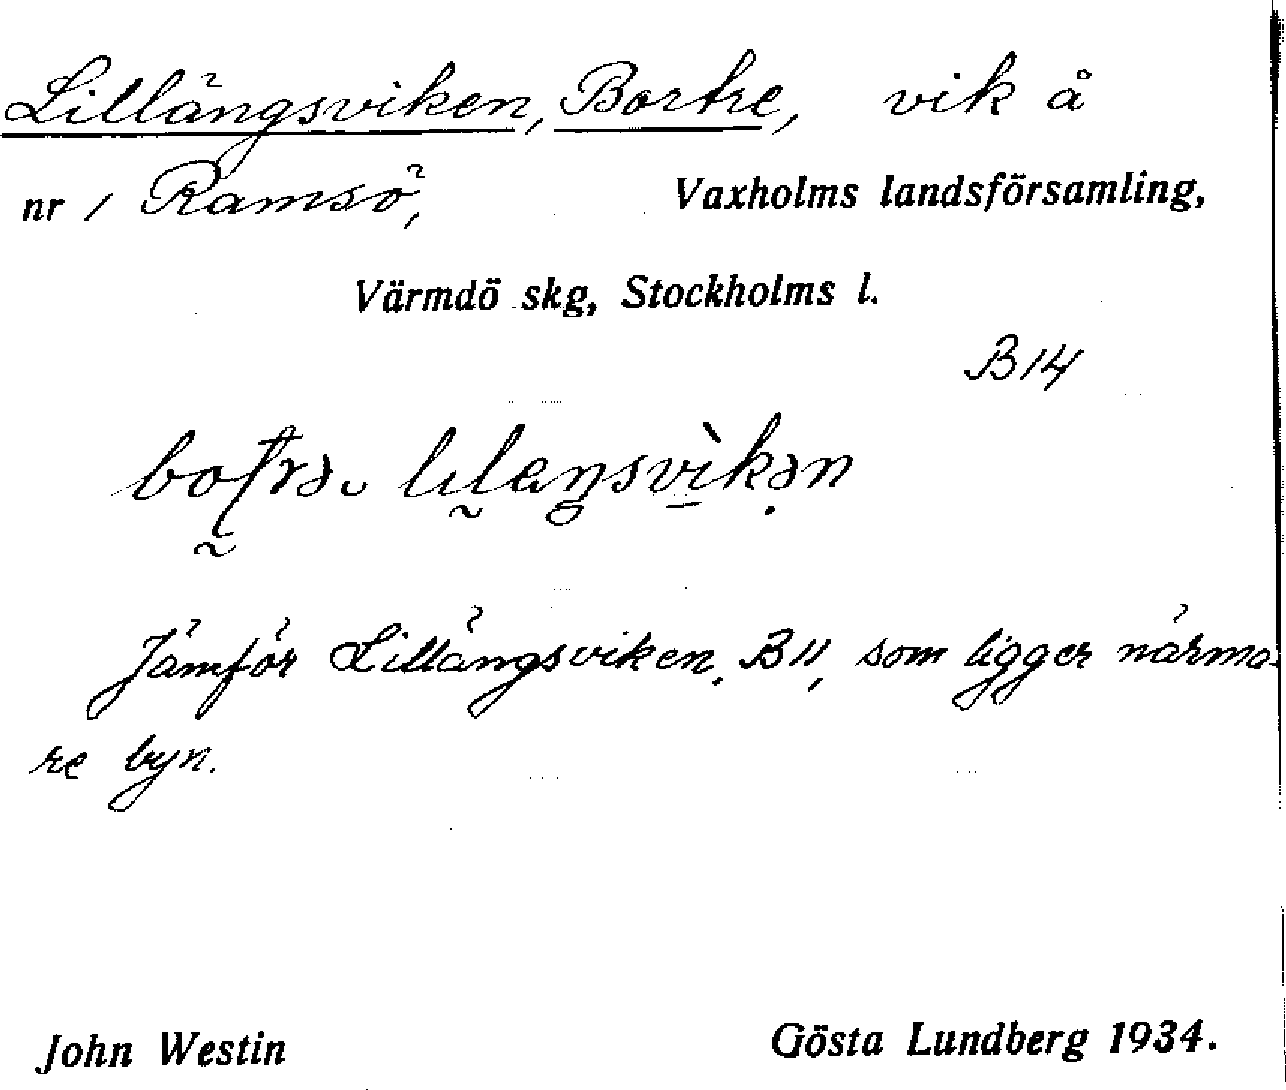 Lillängsviken, Bortre, vik å
nr 1 Ramsö, Vaxholms landsförsamling,
Värmdö skg, Stockholms l.
B14
Jämför Lillängsviken, B11, som ligger närma-
re byn.
John Westin Gösta Lundberg 1934.